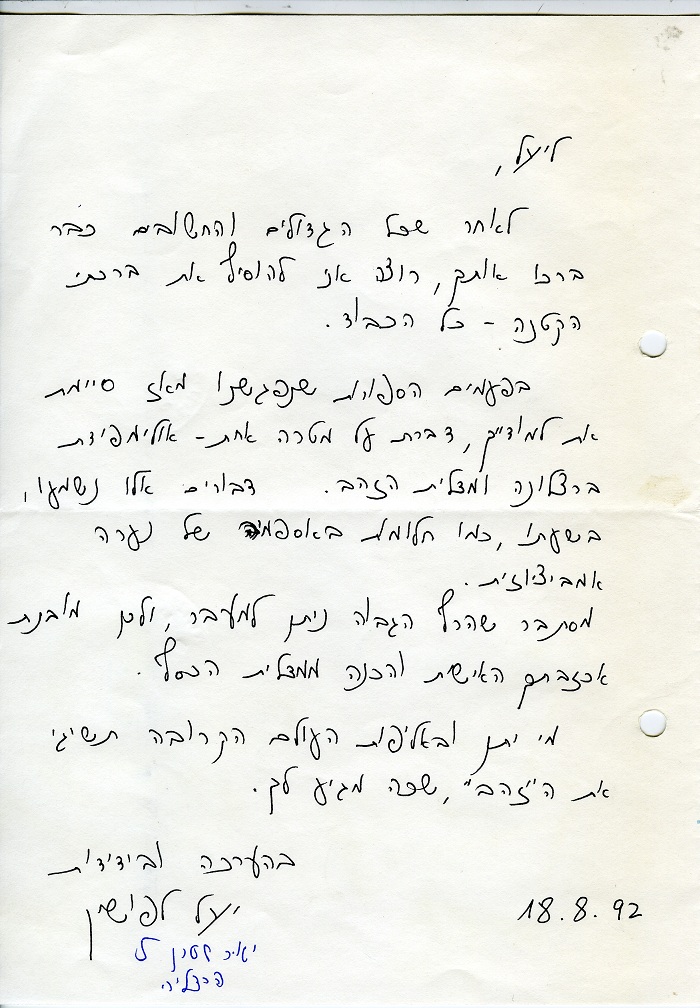 ליעל,
לאחר שכל הגדולים והחשובים כבר
ברכו אותך, רוצה אני להוסיף את ברכתי
הקטנה - כל הכבוד.
בפעמים הספורות שנפגשנו מאז סיימת
את למודייך, דברת על מטרה אחת - אולימפידת
ברצלונה ומדלית הזהב. דבורים אלו נשמעו,
בשעתו, כמו חלומות באספמיה של נערה
אמביציוזית.
מסתבר שהרף הגבוה ניתן למעבר, ולכן מובנת
אכזבתך האישית והכנה ממדלית הכסף.
מי יתן ובאליפות העולם הקרובה תשיגי
את ה"זהב", שכה מגיע לך.
בהערכה ובידידות
יעל
18.8.92
הרצליה